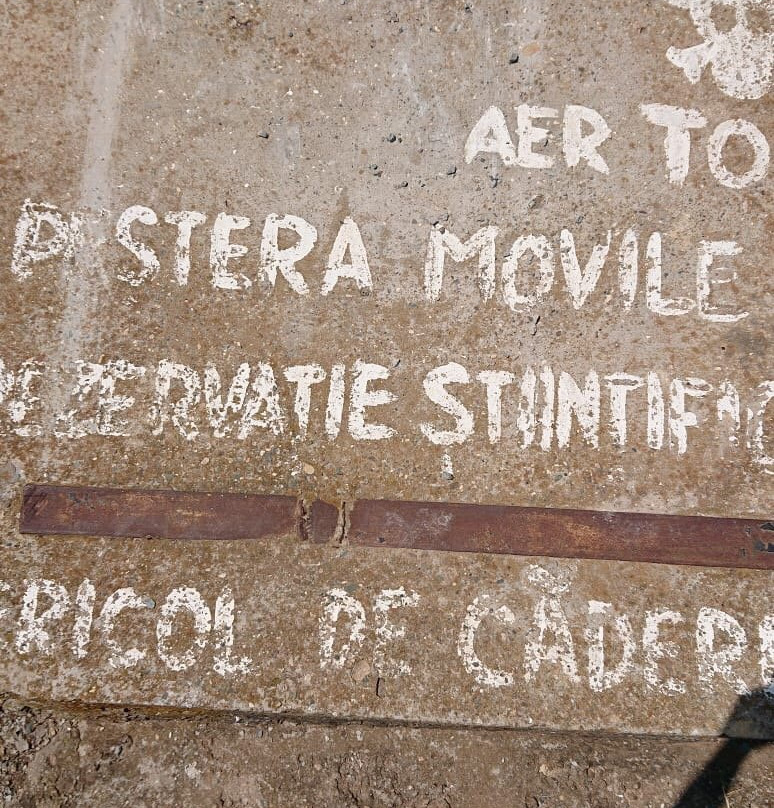 AER TO
PESTERA MOVILE
REZERVATIE ȘTIINTIFIC
ERICOL DE CĂDERE